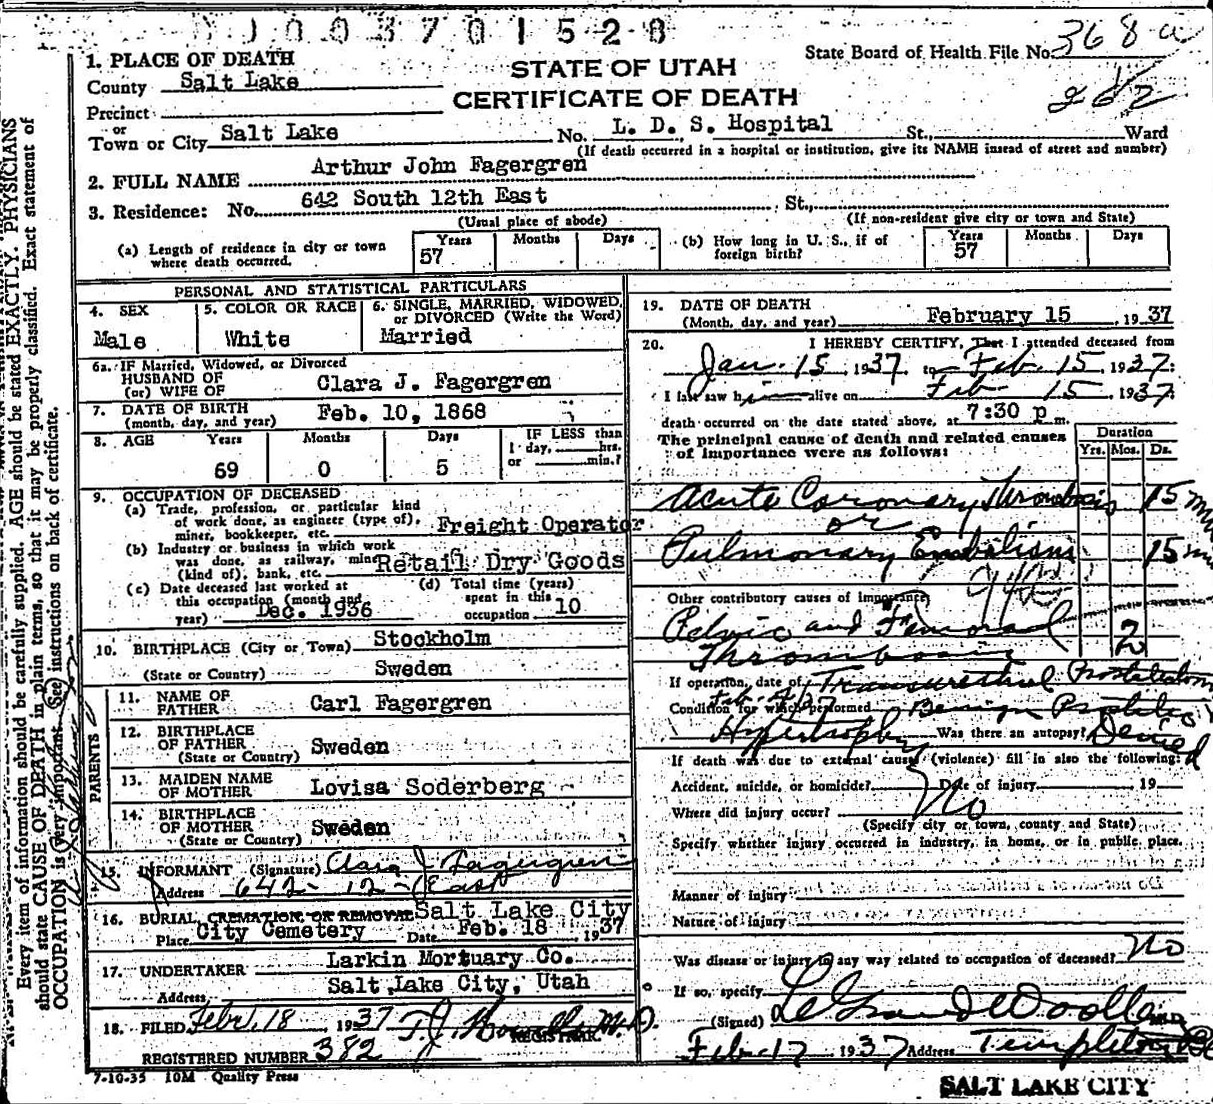 0 0 3 7 0 1 5 2 8
State Board of Health File No. 368 a
262
STATE OF UTAH
CERTIFICATE OF DEATH
1. PLACE OF DEATH
County Salt Lake
Precinct
or
Town or City Salt Lake No. L. D. S. Hospital St., Ward
(If death occurred in a hospital or institution, give its NAME insead of street and number)
2. FULL NAME Arthur John Fagergren
3. Residence: No. 642 South 12th East St.,
(Usual place of abode) (If non-resident give city or town and State)
(a) Length of residence in city or town where death occurred. Years 57 Months Days
(b) How long in U. S., if of foreign birth? Years 57 Months Days
PERSONAL AND STATISTICAL PARTICULARS
4. SEX Male
5. COLOR OR RACE White
6. SINGLE, MARRIED, WIDOWED, or DIVORCED (Write the Word) Married
6a. IF Married, Widowed, or Divorced
HUSBAND OF
(or) WIFE OF Clara J. Fagergren
7. DATE OF BIRTH
(month, day, and year) Feb. 10, 1868
8. AGE Years 69 Months 0 Days 5 IF LESS than 1 day, hrs. or min.?
9. OCCUPATION OF DECEASED
(a) Trade, profession, or particular kind
of work done, as engineer (type of),
miner, bookkeeper, etc. Freight Operator
(b) Industry or business in which work
was done, as railway, mine
(kind of), bank, etc. Retail Dry Goods
(c) Date deceased last worked at
this occupation (month and
year) Dec. 1936
(d) Total time (years)
spent in this
occupation 10
10. BIRTHPLACE (City or Town) Stockholm
(State or Country) Sweden
PARENTS
11. NAME OF FATHER Carl Fagergren
12. BIRTHPLACE OF FATHER (State or Country) Sweden
13. MAIDEN NAME OF MOTHER Lovisa Soderberg
14. BIRTHPLACE OF MOTHER (State or Country) Sweden
15. INFORMANT (Signature) Clara J. Fagergren
Address 642-12-East
16. BURIAL, CREMATION, OR REMOVAL Salt Lake City
Place City Cemetery Date Feb. 18, 1937
17. UNDERTAKER Larkin Mortuary Co.
Address Salt Lake City, Utah
18. FILED Feb. 18, 1937 T. J. Howells M.D.
REGISTRAR.
REGISTERED NUMBER 382
7-10-35 10M Quality Press
19. DATE OF DEATH
(Month, day, and year) February 15, 1937
20. I HEREBY CERTIFY, That I attended deceased from
Jan. 15 1937 to Feb. 15, 1937:
I last saw him alive on Feb 15 1937
death occurred on the date stated above, at 7:30 p m.
The principal cause of death and related causes
of importance were as follows: Duration Yrs. Mos. Ds.
Acute Coronary Thrombosis 15 min
or
Pulmonary Embolism 15 m
Other contributory causes of importance
Pelvic and Femoral 2
Thrombosis
If operation, date of Feb. Transurethral
Condition for which performed Benign
Hypertrophy Was there an autopsy? Denied
If death was due to external cause (violence) fill in also the following:
Accident, suicide, or homicide? Date of injury 19
No
Where did injury occur?
(Specify city or town, county and State)
Specify whether injury occurred in industry, in home, or in public place.
Manner of injury
Nature of injury
Was disease or injury in any way related to occupation of deceased? No
If so, specify
(Signed) LeGrand Woolley M.D.
Feb-17 1937 Address Templeton
SALT LAKE CITY
Every item of information should be carefully supplied. AGE should be stated EXACTLY. PHYSICIANS
should state CAUSE OF DEATH in plain terms, so that it may be properly classified. Exact statement of
OCCUPATION is very important. (See) instructions on back of certificate.